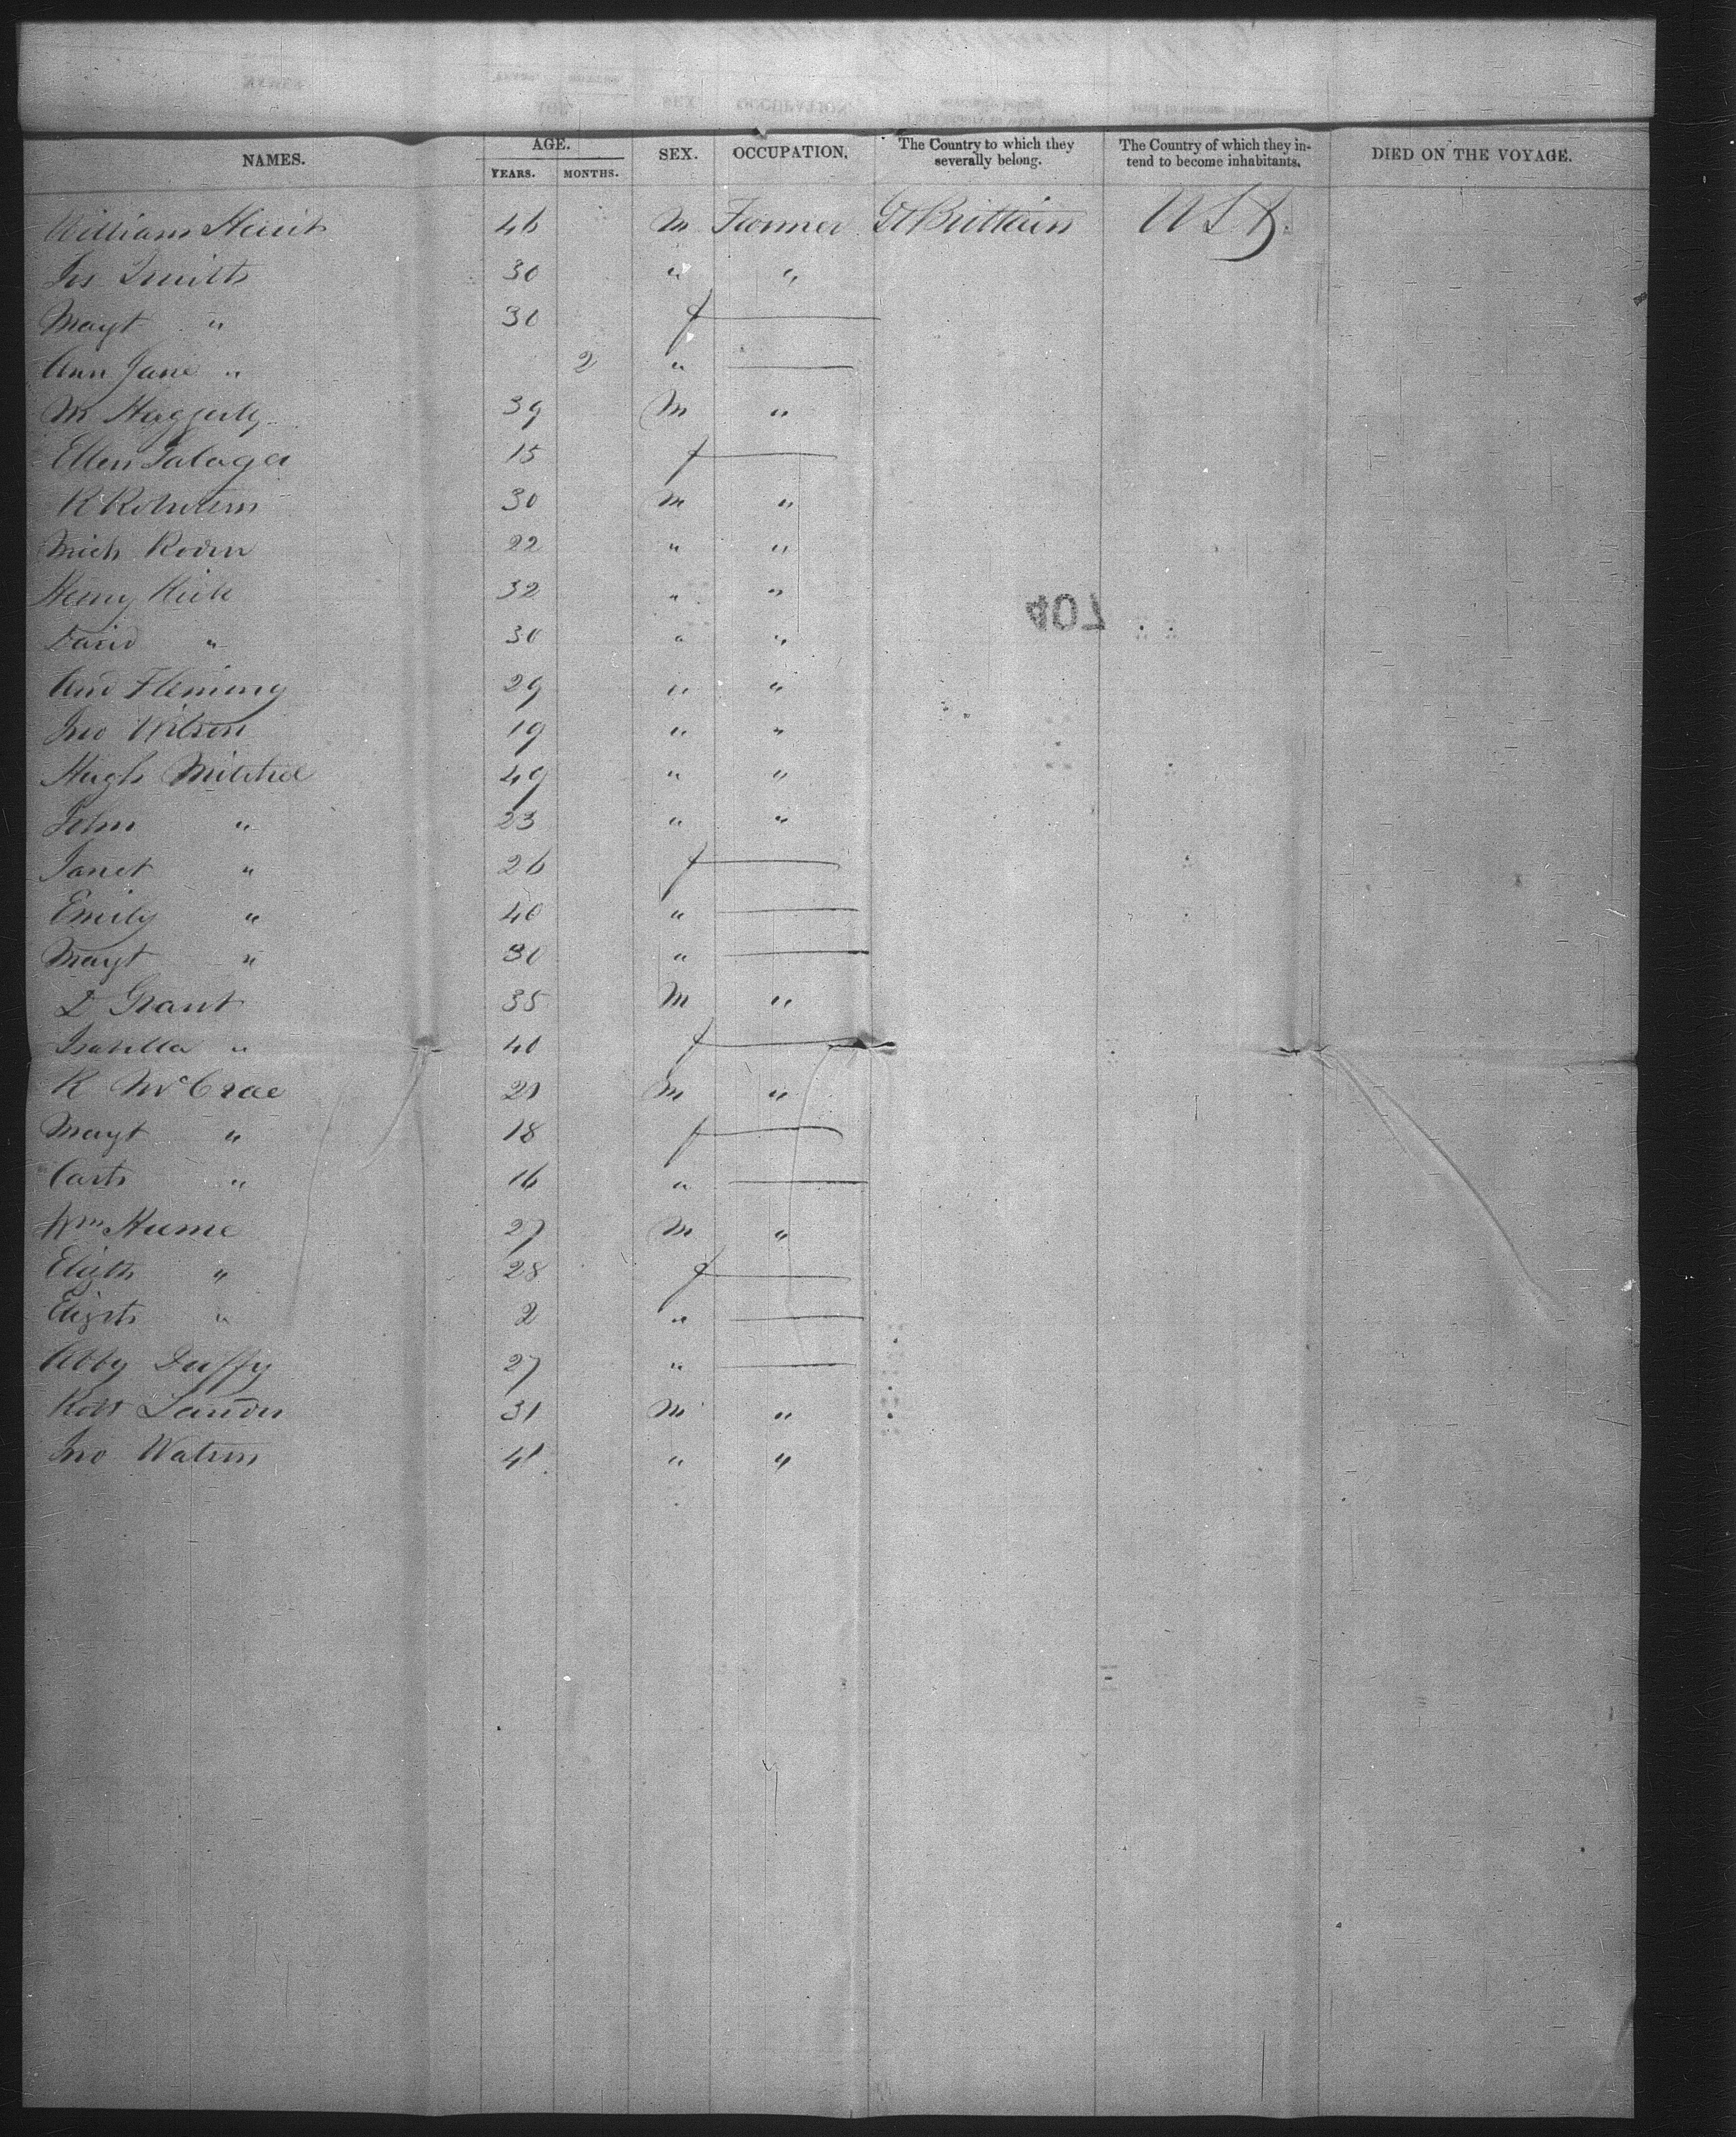 NAMES. AGE. YEARS. MONTHS. SEX. OCCUPATION. The Country to which they severally belong. The Country of which they intend to become inhabitants. DIED ON THE VOYAGE.
William 46 M Farmer Gt Brittain USA.
Jas Smith 30 " "
Magt " 30 f
Ann Jane " 2 "
M Haggerty 39 M "
Ellen 15 f
R Robertson 30 M "
Mich 22 " "
Henry 32 " "
David " 30 " "
And Fleming 29 " "
Jno Wilson 19 " "
Hugh Mitchel 49 " "
John " 23 " "
Janet " 26 f
Emily " 40 "
Magt " 30 "
D Grant 35 M "
Isabella " 40 f
R McCrae 21 M "
Magt " 18 f
Cath " 16 "
Wm Hume 27 M "
Elizth " 28 f
Elizth " 2 "
Abby Duffy 27 "
Robt 31 M "
Jno Watson 41 " "
407